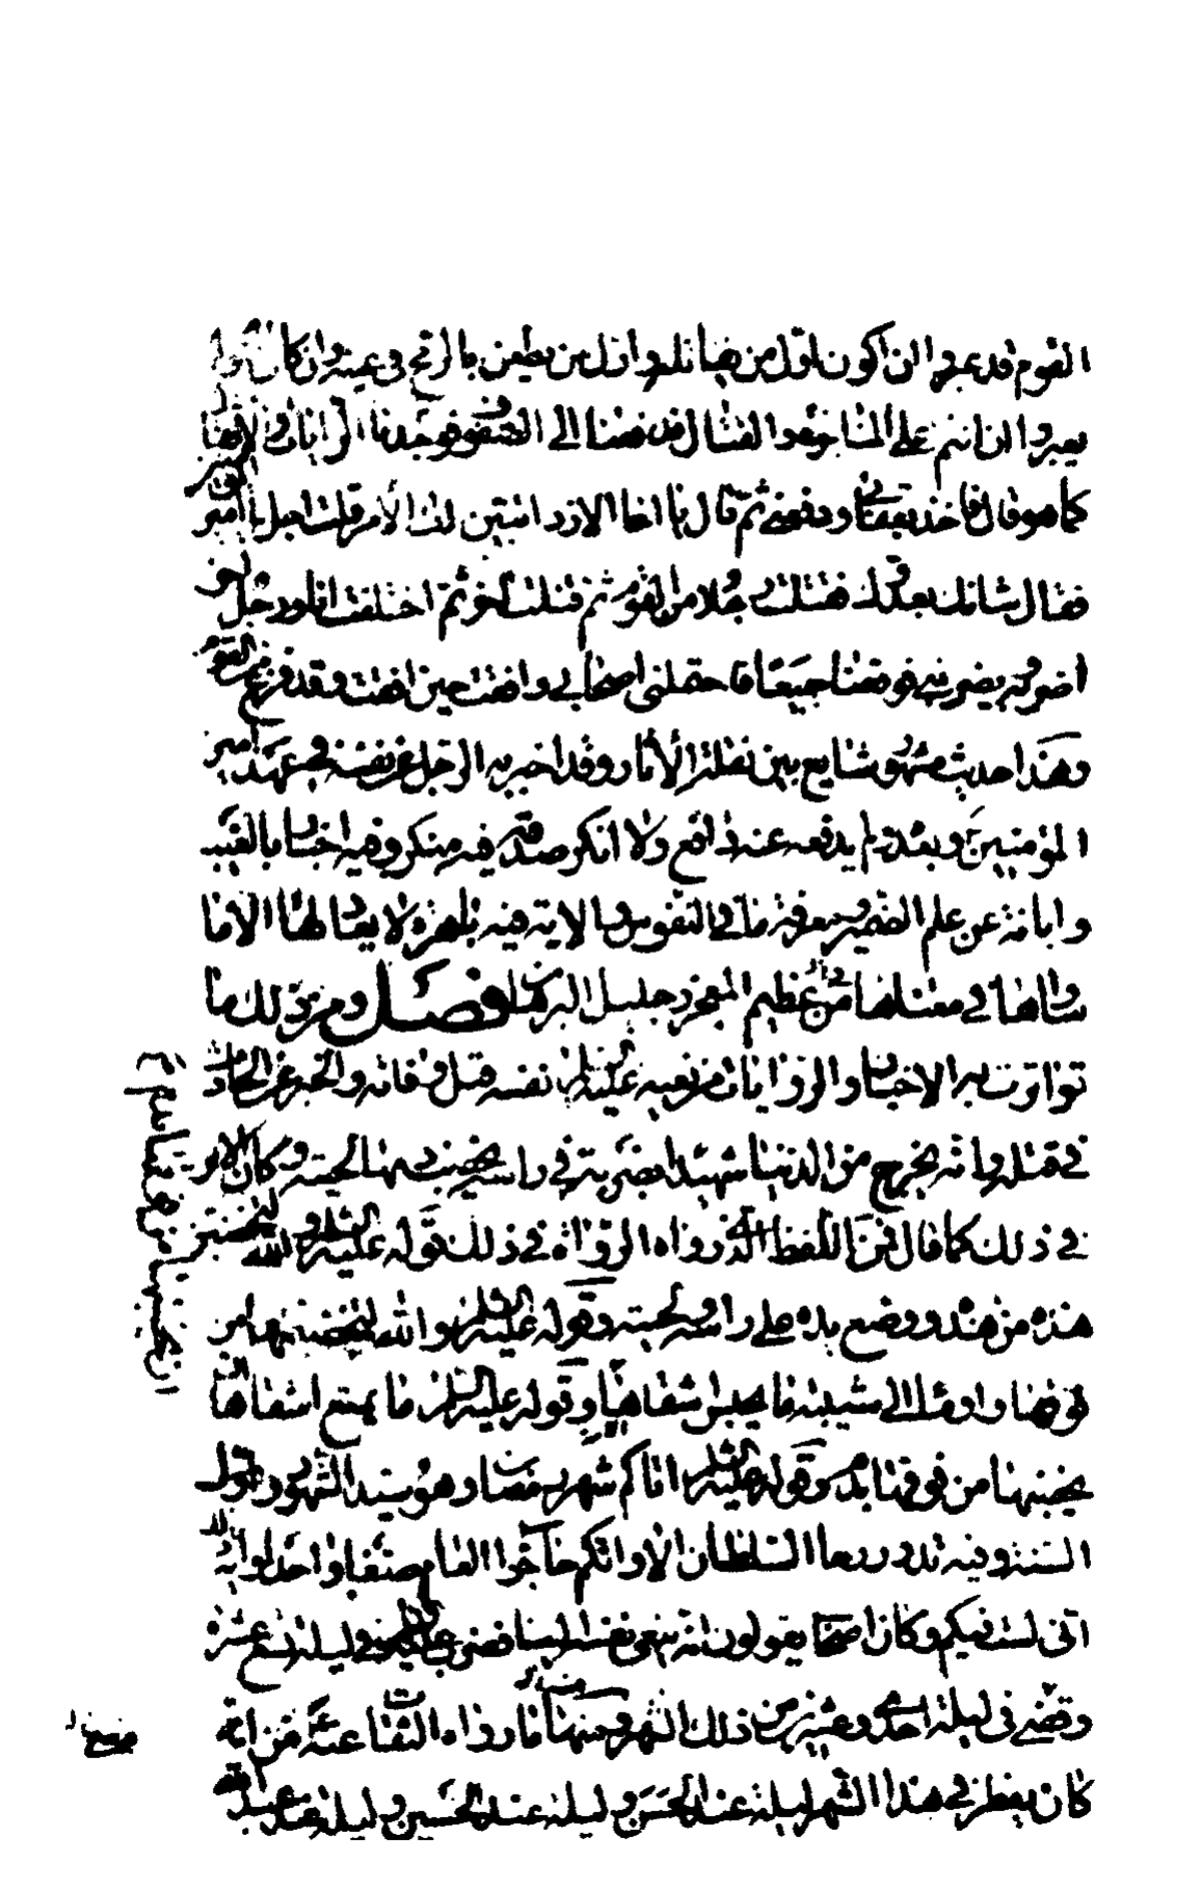 القوم قد عبروا ان اكون اول من يقاتله واول من يطعن بالرمح في عينه وان كانوا لم
يعبروا ان اتم على المناجزة والقتال فدفعنا الى الصفوف فوجدنا الرايات والاثقال
كما هو قال فاخذ بقفاي ودفعني ثم قال يا اخا الازد اتبين لك الامر قلت اجل يا امير المؤمنين
فقال شانك بعدوك فقتلت رجلا من القوم ثم قتلت اخر ثم اختلفت انا ورجل اخر
اضربه ويضربني فوقعنا جميعا فاحتملني اصحابي وافقت حين افقت وقد فرغ من القوم
وهذا حديث مشهور شايع بين نقلة الاثار وقد اخبر به الرجل عن نفسه في عهد امير
المؤمنين وبعده فلم يدفعه عنه دافع ولا انكر صدقه فيه منكر وفيه اخبار بالغيب
وابانة عن علم الضمير ومعرفة ما في النفوس والاية فيه باهرة لا يعادلها الا ما
ساواها في معناها من عظيم المعجز وجليل البرهان فصل ومن ذلك ما
تواترت به الاخبار والروايات من نعيه عليه السلام نفسه قبل وفاته والخبر عن الحادث
في قتله وانه يخرج من الدنيا شهيدا بضربة في راسه يخضب دمها لحيته وكان الامر
في ذلك كما قال فمن اللفظ الذي رواه الرواة في ذلك قوله عليه السلام والله لتخضبن
هذه من هذه ووضع يده على راسه ولحيته وقوله عليه السلام والله ليخضبنها من
فوقها واومأ الى شيبته ما يحبس اشقاها وقوله عليه السلام ما يمنع اشقاها ان
يخضبها من فوقها بدم وقوله عليه السلام اتاكم شهر رمضان وهو سيد الشهور واول
السنة وفيه تدور رحا السلطان الا وانكم حاجوا العام صفا واحدا واية ذلك
اني لست فيكم وكان اصحابه يقولون انه ينعى نفسه الينا فضرب عليه السلام في ليلة تسع عشرة
وقضى في ليلة احدى وعشرين من ذلك الشهر ومنها ما رواه الثقات عنه من انه
كان يفطر في هذا الشهر ليلة عند الحسن وليلة عند الحسين وليلة عند عبد الله